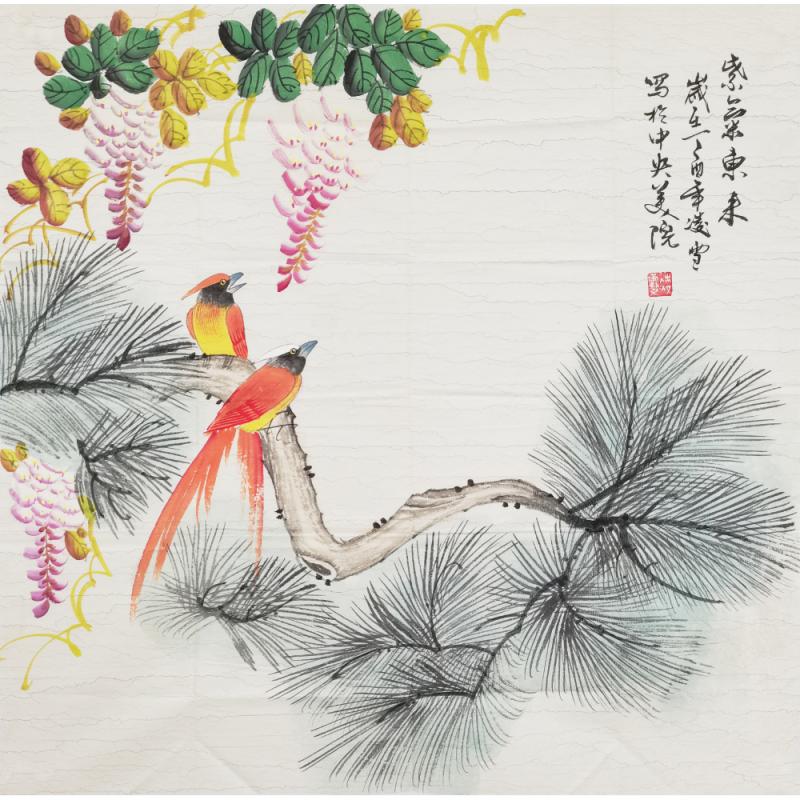 紫气东来
岁在丁酉年凌雪
写于中央美院